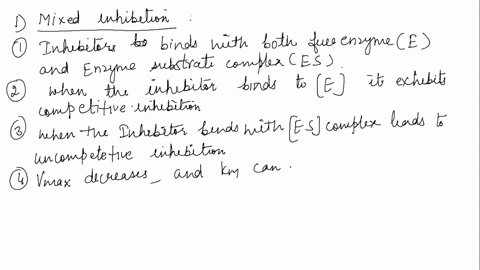 1) Mixed inhibition :
① Inhibitors binds with both free enzyme (E)
and Enzyme substrate complex (ES).
② when the inhibitor binds to [E] it exhibits
competitive inhibition
③ when the Inhibitor binds with [ES] complex leads to
uncompetetive inhibition
④ Vmax decreases_ and km can .